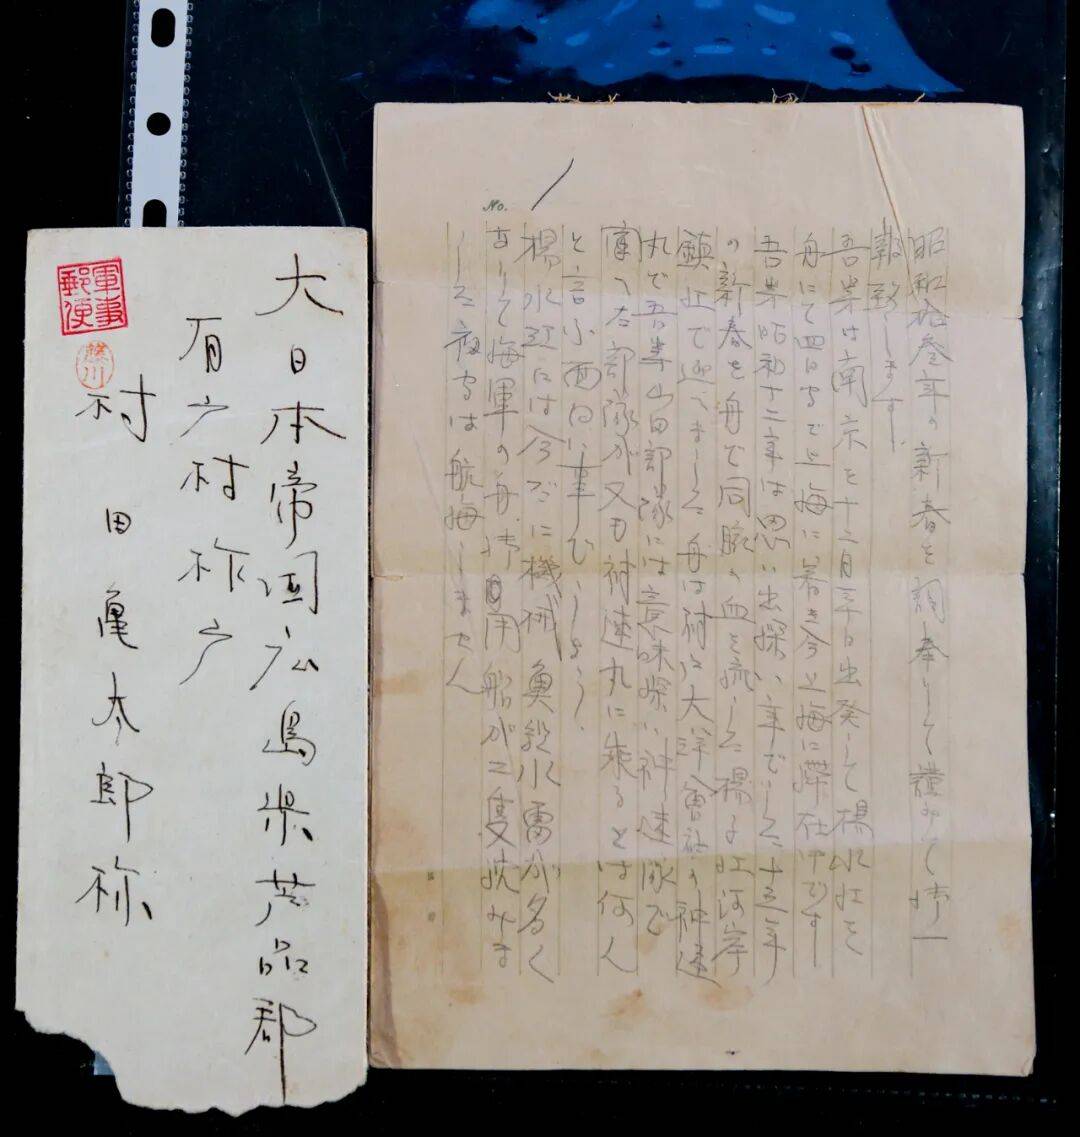 大日本帝国広島県芦品郡
有广村柞广
村田亀太郎
軍事郵便
藤川
No. 1
昭和拾参年の新春を奉して謹みて
報致します.
吾等は南京を十二月三十日出発して楊水江を
舟にて四日で上海に着き今上海に滞在中です
吾等昭和十二年は思い出深い年でした十三年
の新春を舟で同胞の血を流した楊子江河岸
鎮江で迎へました舟は大洋會社の神速
丸で吾等山田部隊には意味深い神速隊で
部隊が又も神速丸に乗るとは何ん
と言ふ面白い事でしょう.
楊水江には今だに機械水雷が多く
ありて海軍の舟用船が二隻沈みま
した夜は航海しません